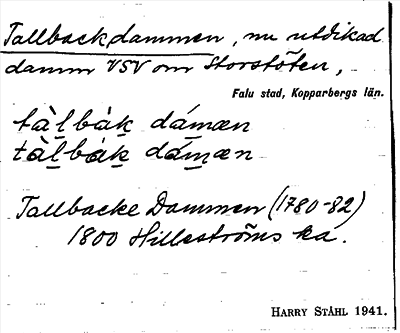 Tallbackdammen, nu utdikad
damm VSV om Storstöten,
Falu stad, Kopparbergs län.
tàl̲bák̲ dámæn
tàl̲bák̲ dám̲æn
Tallbacke Dammen (1780-82)
1800 Hilleströms ka.
HARRY STÅHL 1941.